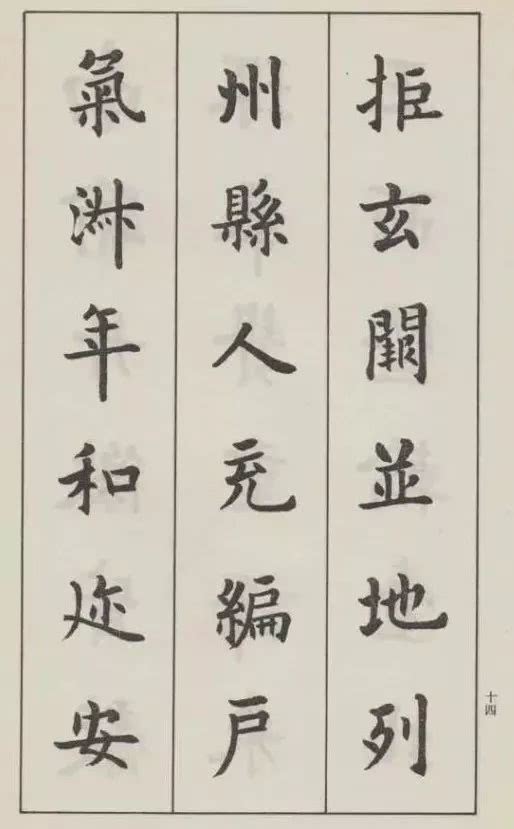 拒玄闕並地列
州縣人充編戶
氣淑年和迩安
十四